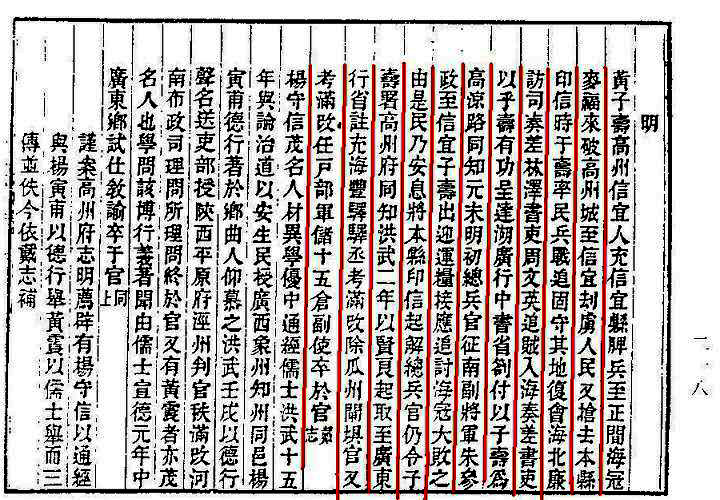 明
黃子壽高州信宜人充信宜縣牌兵至正間海冦
麥福來破高州城至信宜刦虜人民又搶去本縣
印信時子壽率民兵戰追固守其地復會海北廉
訪司奏差林澤書吏周文英追賊入海奏差書吏
以子壽有功呈達湖廣行中書省劄付以子壽爲
高凉路同知元末明初總兵官征南副將軍朱參
政至信宜子壽出迎運糧接應追討海冦大敗之
由是民乃安息將本縣印信起解總兵官仍令子
壽署高州府同知洪武二年以賢良起取至廣東
行省註充海豐驛驛丞考滿改除瓜州閘埧官又
考滿改任戸部軍儲十五倉副使卒於官黃志
楊守信茂名人材異學優中通經儒士洪武十五
年與論治道以安生民授廣西象州知州同邑楊
寅甫德行著於鄉曲人仰慕之洪武壬戌以德行
聲名送吏部授陝西平原府涇州判官秩滿改河
南布政司理問所理問終於官又有黃霓者亦茂
名人也學問該博行義著聞由儒士宣德元年中
廣東鄉試仕敎諭卒于官同上
謹案高州府志明薦辟有楊守信以通經
與楊寅甫以德行舉黃霓以儒士舉而三
傳並佚今依戴志補
二一八